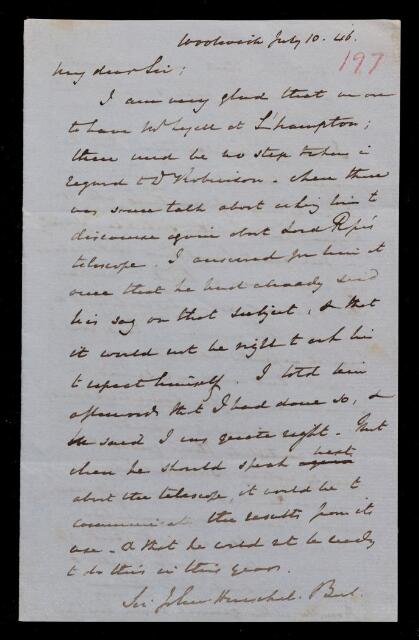 Woolwich July 10. 46.
197
My dear Sir;
I am very glad that we are
to have Mr Lyell at S'hampton;
there need be no step taken in
regard to Dr Robinson. When there
was some talk about asking him to
discourse again about Lord Rosse's
telescope I answered for him at
once that he had already said
his say on that subject, & that
it would not be right to ask him
to repeat himself. I told him
afterwards that I had done so, &
he said I was quite right. That
when he should speak again next
about the telescope, it would be to
communicate the results from its
use - & that he could not be ready
to do this in this year.
Sir John Herschel. Bart.